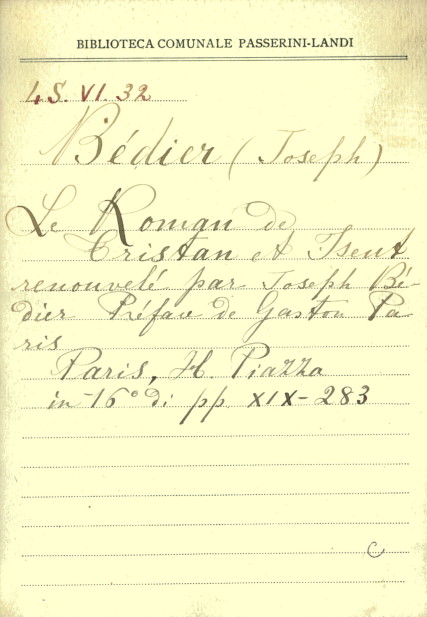 BIBLIOTECA COMUNALE PASSERINI-LANDI
4S. VI. 32
Bédier (Joseph)
Le Roman de
Tristan et Iseut
renouvelé par Joseph Bé-
dier Préface de Gaston Pa-
ris
Paris, H. Piazza
in-16° di pp XIX-283
C